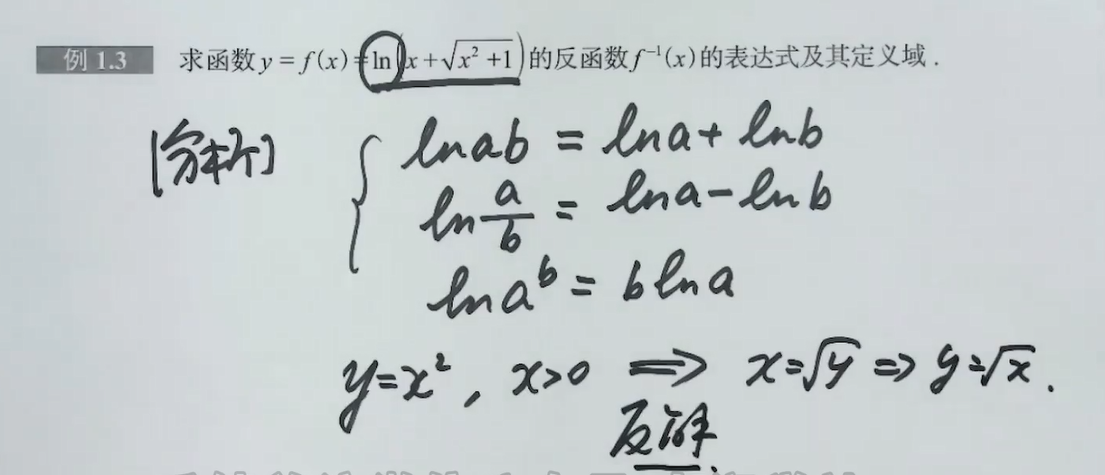 例 1.3 求函数 y = f(x) = ln(x + √(x² + 1)) 的反函数 f⁻¹(x) 的表达式及其定义域 .
[分析] { ln ab = ln a + ln b
ln a/b = ln a − ln b
ln aᵇ = b ln a
y = x² , x > 0 ⟹ x = √y ⇒ y = √x .
反解